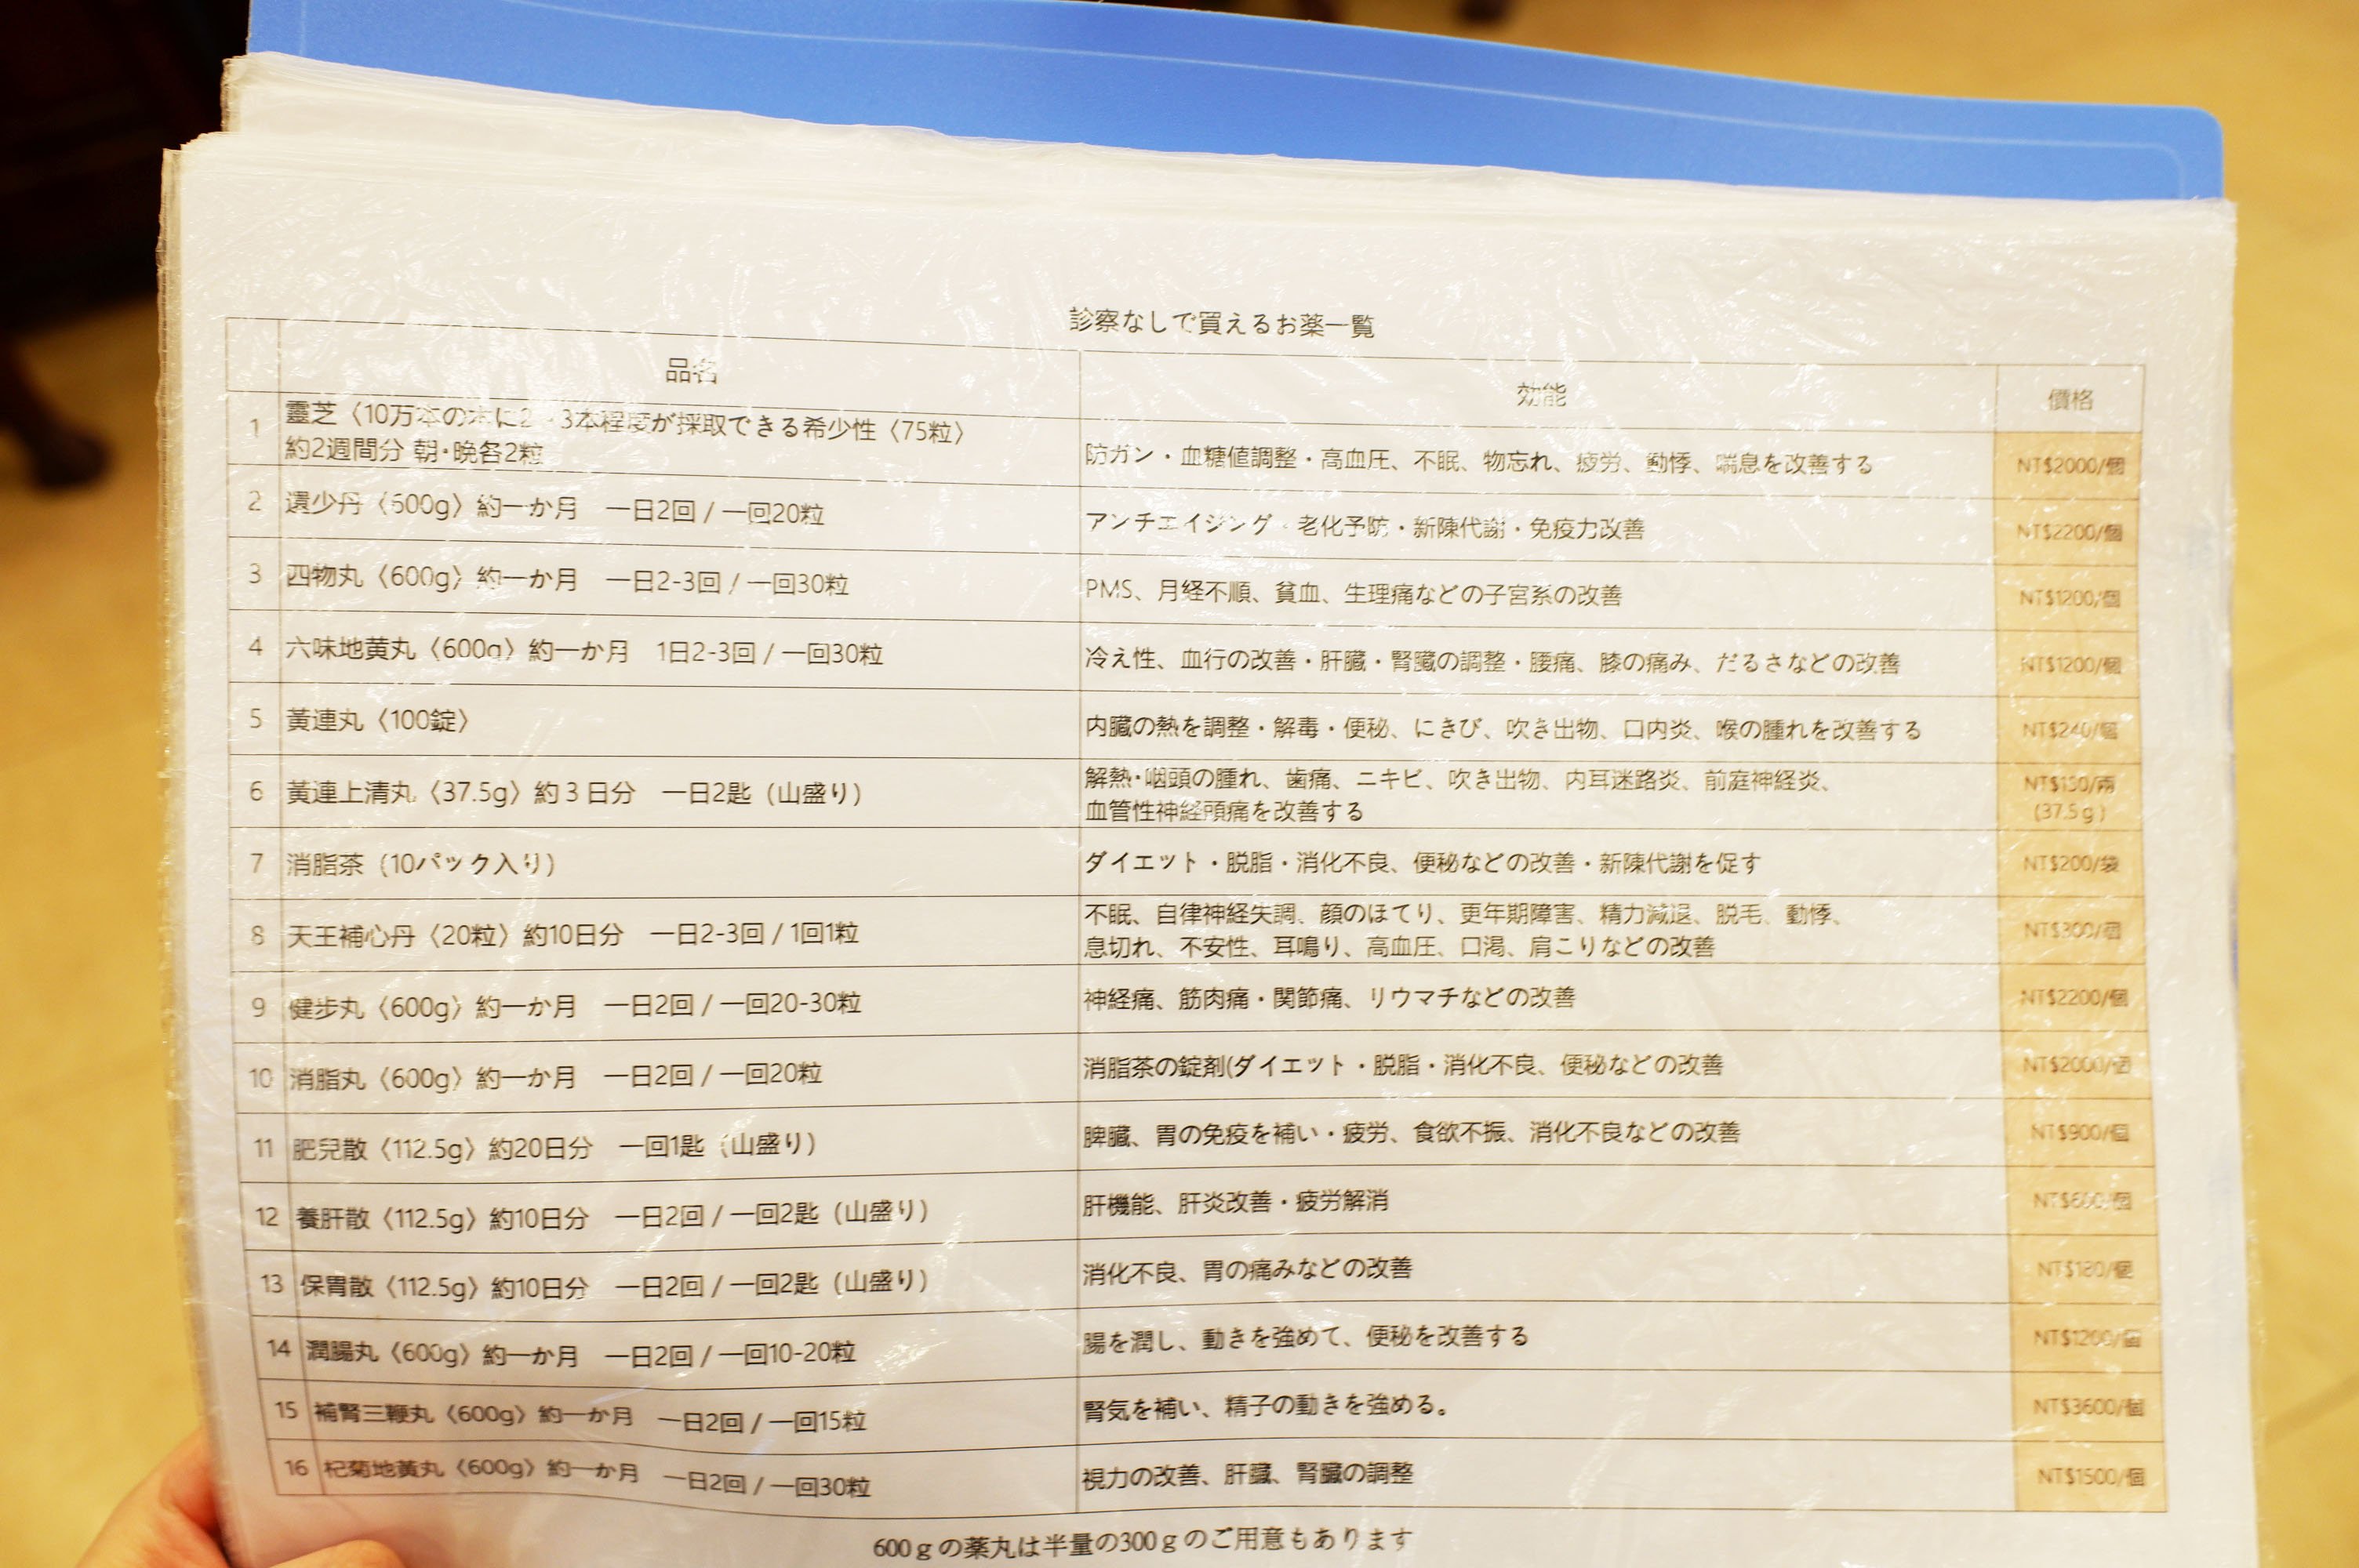 診察なしで買えるお薬一覧
品名 効能 價格
1 靈芝〈10万本の木に2 3本程度が採取できる希少性〈75粒〉
約2週間分 朝・晩各2粒
防ガン・血糖値調整・高血圧、不眠、物忘れ、疲労、動悸、喘息を改善する NT$2000/個
2 還少丹〈600g〉約一か月 一日2回 / 一回20粒 アンチエイジング・老化予防・新陳代謝・免疫力改善 NT$2200/個
3 四物丸〈600g〉約一か月 一日2-3回 / 一回30粒 PMS、月経不順、貧血、生理痛などの子宮系の改善 NT$1200/個
4 六味地黄丸〈600g〉約一か月 1日2-3回 / 一回30粒 冷え性、血行の改善・肝臓・腎臓の調整・腰痛、膝の痛み、だるさなどの改善 NT$1200/個
5 黃連丸〈100錠〉 内臓の熱を調整・解毒・便秘、にきび、吹き出物、口内炎、喉の腫れを改善する NT$240/個
6 黃連上清丸〈37.5g〉約３日分 一日2匙（山盛り） 解熱・咽頭の腫れ、歯痛、ニキビ、吹き出物、内耳迷路炎、前庭神経炎、
血管性神経頭痛を改善する
NT$130/兩
(37.5ｇ)
7 消脂茶（10パック入り） ダイエット・脱脂・消化不良、便秘などの改善・新陳代謝を促す NT$200/袋
8 天王補心丹〈20粒〉約10日分 一日2-3回 / 1回1粒 不眠、自律神経失調、顔のほてり、更年期障害、精力減退、脱毛、動悸、
息切れ、不安性、耳鳴り、高血圧、口渇、肩こりなどの改善
NT$300/個
9 健步丸〈600g〉約一か月 一日2回 / 一回20-30粒 神経痛、筋肉痛・関節痛、リウマチなどの改善 NT$2200/個
10 消脂丸〈600g〉約一か月 一日2回 / 一回20粒 消脂茶の錠剤(ダイエット・脱脂・消化不良、便秘などの改善 NT$2000/個
11 肥兒散〈112.5g〉約20日分 一回1匙（山盛り） 脾臓、胃の免疫を補い・疲労、食欲不振、消化不良などの改善 NT$900/個
12 養肝散〈112.5g〉約10日分 一日2回 / 一回2匙（山盛り） 肝機能、肝炎改善・疲労解消
13 保胃散〈112.5g〉約10日分 一日2回 / 一回2匙（山盛り） 消化不良、胃の痛みなどの改善 NT$180/個
14 潤腸丸〈600g〉約一か月 一日2回 / 一回10-20粒 腸を潤し、動きを強めて、便秘を改善する NT$1200/個
15 補腎三鞭丸〈600g〉約一か月 一日2回 / 一回15粒 腎気を補い、精子の動きを強める。 NT$3600/個
16 杞菊地黃丸〈600g〉約一か月 一日2回 / 一回30粒 視力の改善、肝臓、腎臓の調整 NT$1500/個
600ｇの薬丸は半量の300ｇのご用意もあります